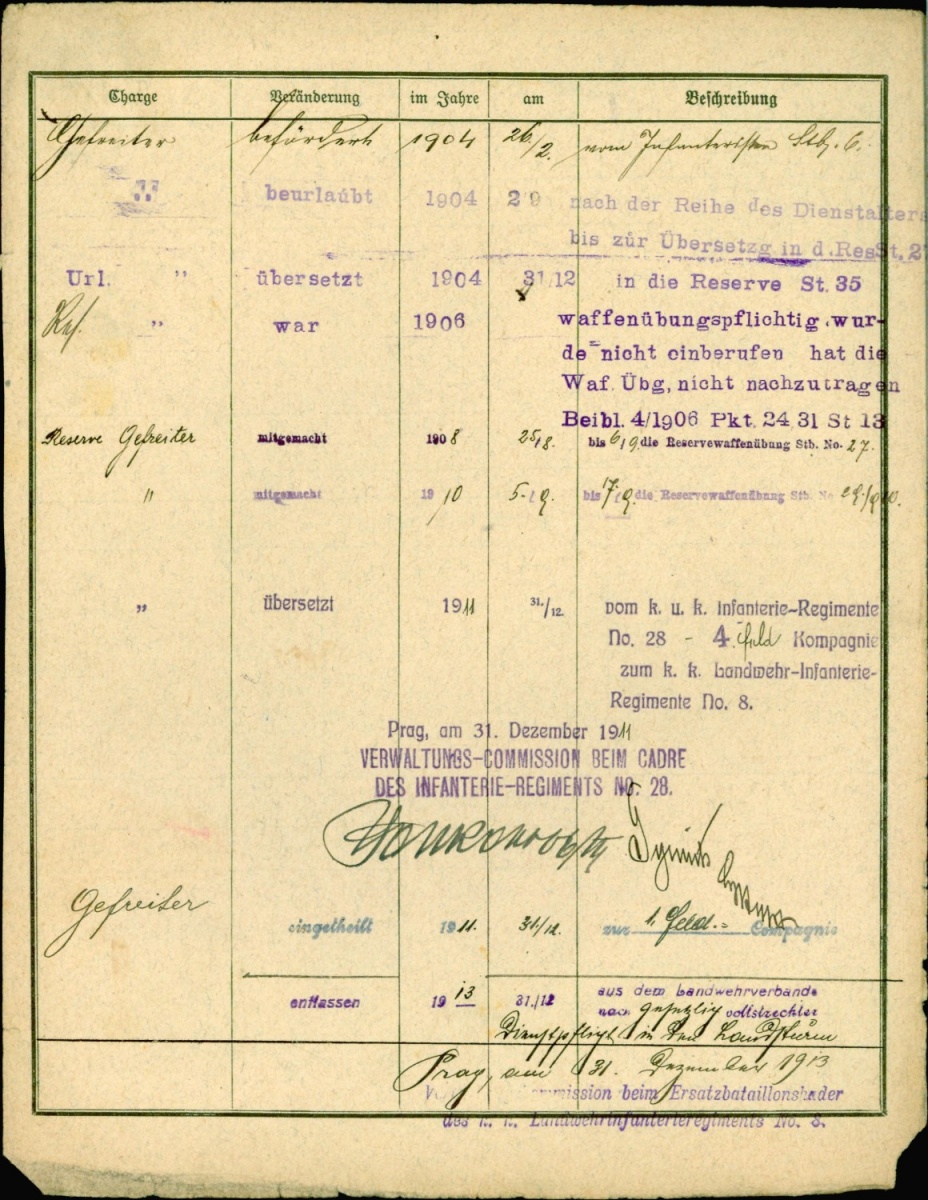 Charge Veränderung im Jahre am Beschreibung
Gefreiter befördert 1904 26/2. vom Infanteristen Stb. 6.
" beurlaubt 1904 2 9 nach der Reihe des Dienstalters
bis zur Übersetzg in d. Res St. 27
Url. " übersetzt 1904 31 12 in die Reserve St. 35
Res. " war 1906 waffenübungspflichtig wur-
de nicht einberufen hat die
Waf. Übg, nicht nachzutragen
Beibl. 4/1906 Pkt. 24, 31 St 13
Reserve Gefreiter mitgemacht 1908 25/8. bis 6/9 die Reservewaffenübung Stb. No. 27.
" mitgemacht 1910 5. 9. bis 17/9. die Reservewaffenübung Stb. No
" übersetzt 1911 31./12. vom k. u. k. Infanterie-Regimente
No. 28 - 4. Feld Kompagnie
zum k. k. Landwehr-Infanterie-
Regimente No. 8.
Prag, am 31. Dezember 1911
VERWALTUNGS-COMMISSION BEIM CADRE
DES INFANTERIE-REGIMENTS No. 28.
Gefreiter eingetheilt 1911. 31/12. zur 1. Feld.= Compagnie
entlassen 1913 31./12 aus dem Landwehrverbande
nach gesetzlich vollstreckter
Dienstpflicht in den Landsturm
Prag, am 31. Dezember 1913
mmission beim Ersatzbataillonskader
des k. k. Landwehrinfanterieregiments No. 8.